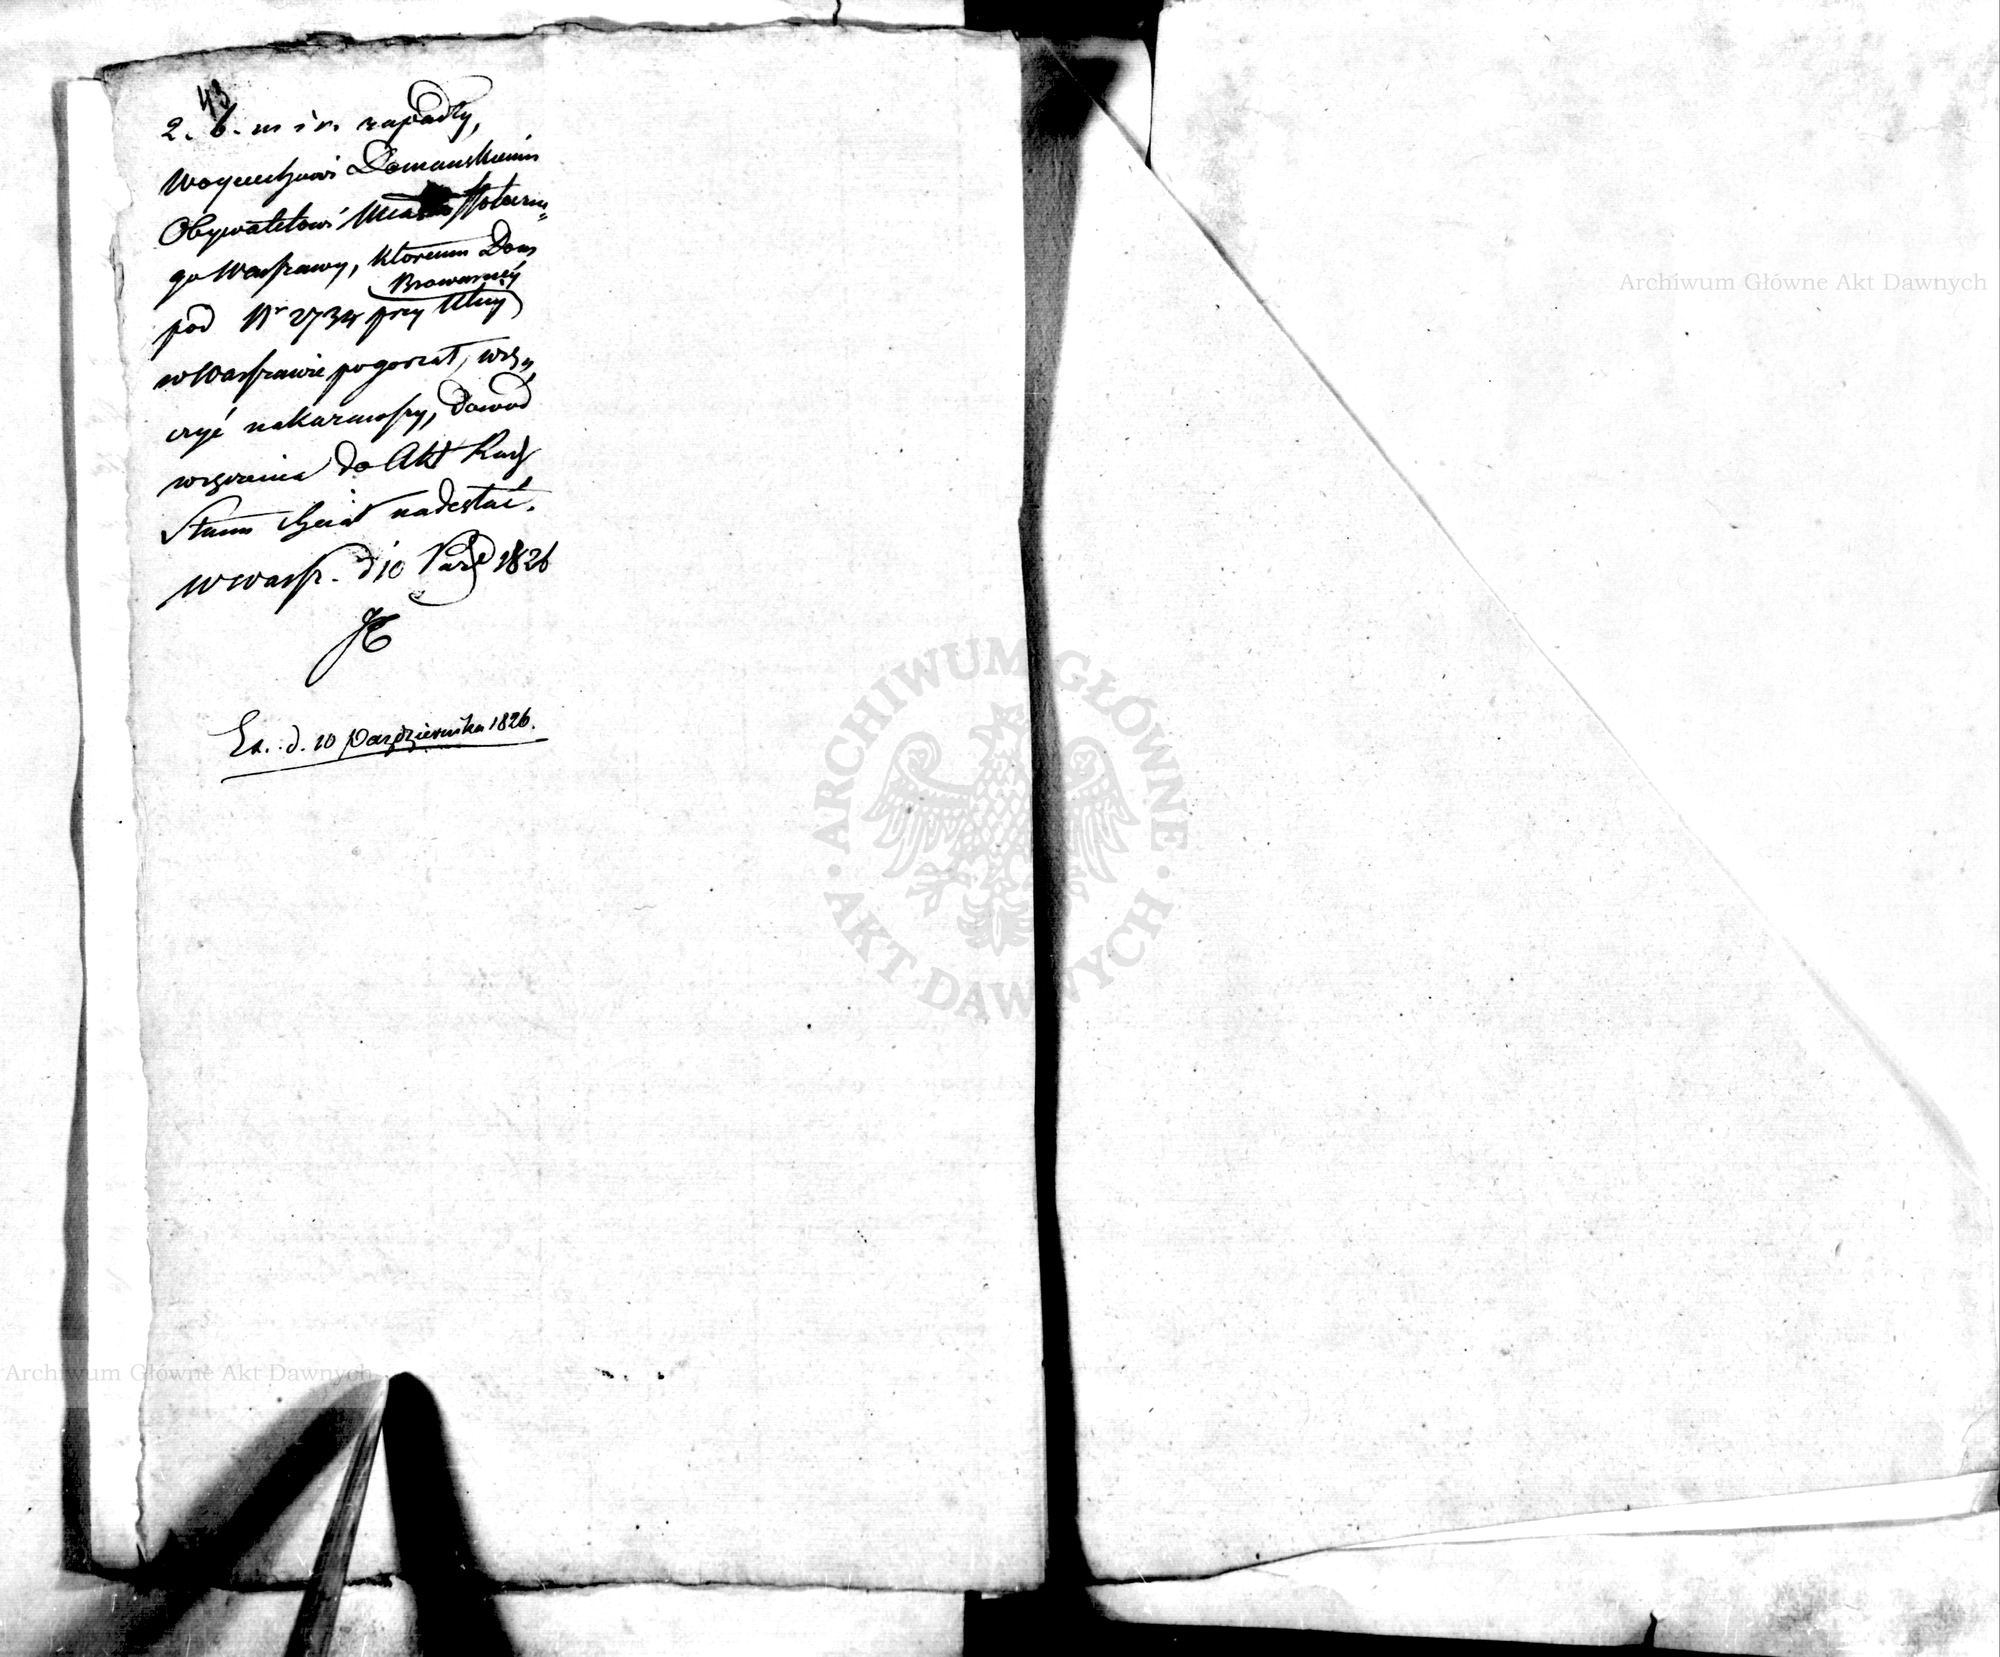 43
2. b. m i r. zapadły,
Woyciechowi Domanskiemu
Obywatelowi Miasta Stołeczne„
go Warszawy, któremu Dom
Browarnéy
pod Nr 2734 przy Ulicy
w Warszawie pogorzał, wrę„
czyć nakazawszy, dowod
wręczenia do Akt Rady
Stanu chciał nadesłać.
w Warsz. d 10 Paźd 1826
Ex. d. 10 Października 1826.
Archiwum Główne Akt Dawnych
ARCHIWUM GŁÓWNE · AKT DAWNYCH ·
Archiwum Główne Akt Dawnych